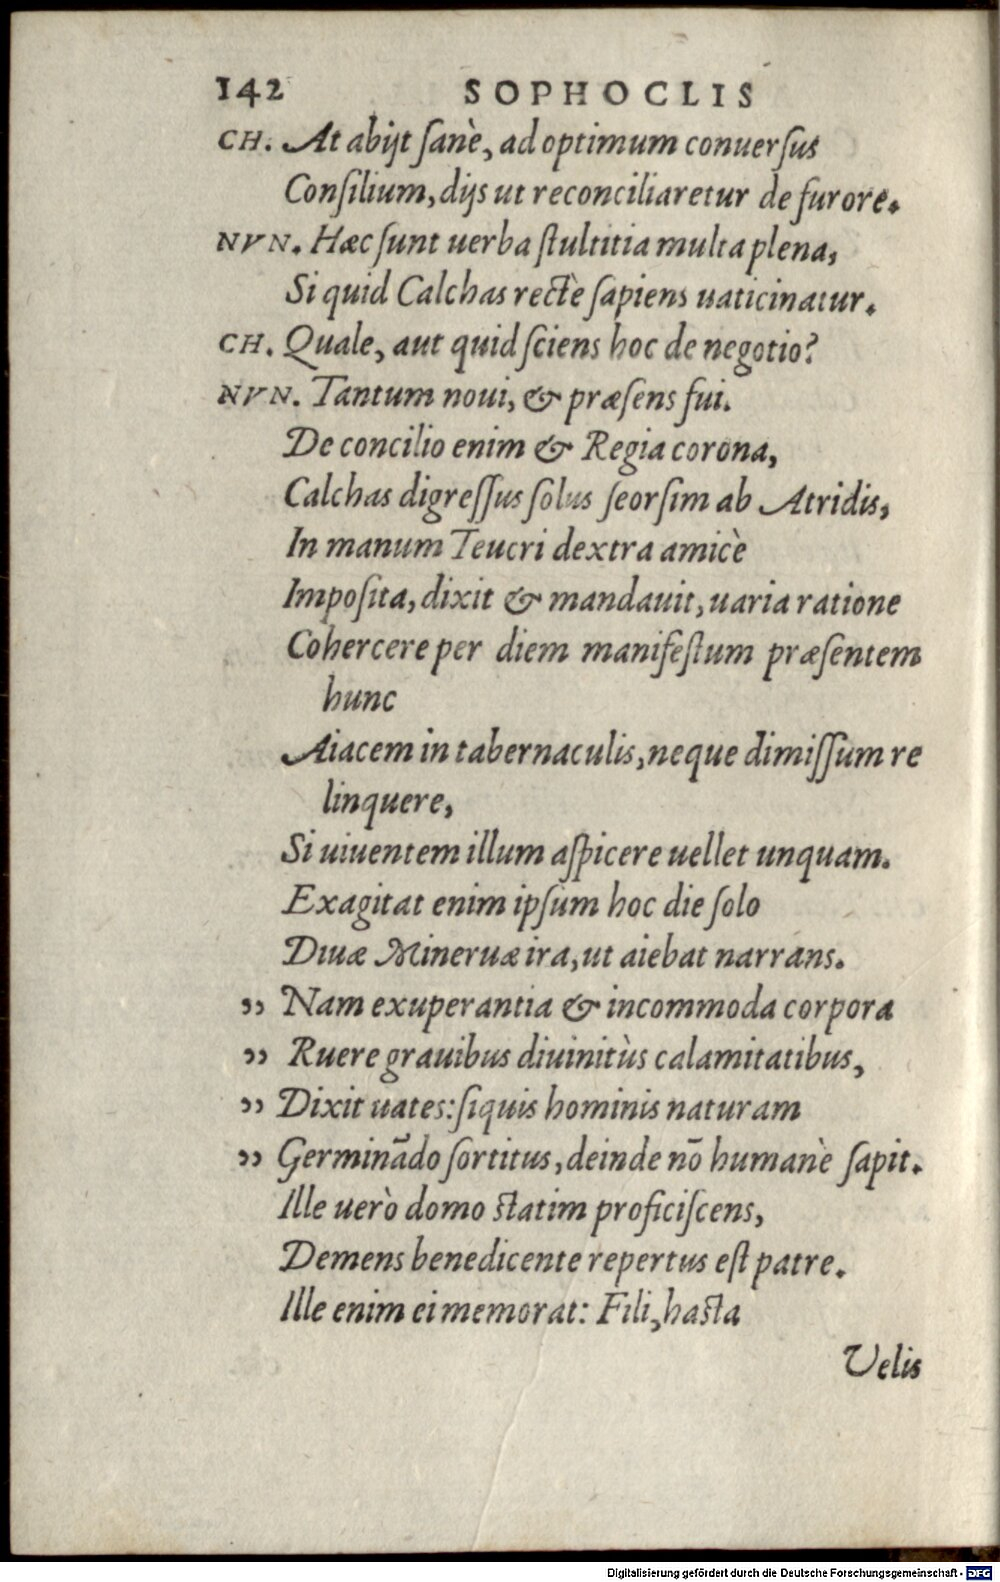 142 SOPHOCLIS
CH. At abijt ſanè, ad optimum conuerſus
Conſilium, dijs ut reconciliaretur de furore.
NVN. Hæc ſunt uerba ſtultitia multa plena,
Si quid Calchas rectè ſapiens uaticinatur.
CH. Quale, aut quid ſciens hoc de negotio?
NVN. Tantum noui, & præſens fui.
De concilio enim & Regia corona,
Calchas digreſſus ſolus ſeorſim ab Atridis,
In manum Teucri dextra amicè
Impoſita, dixit & mandauit, uaria ratione
Cohercere per diem manifeſtum præſentem
hunc
Aiacem in tabernaculis, neque dimiſſum re
linquere,
Si uiuentem illum aſpicere uellet unquam.
Exagitat enim ipſum hoc die ſolo
Diuæ Mineruæ ira, ut aiebat narrans.
„ Nam exuperantia & incommoda corpora
„ Ruere grauibus diuinitùs calamitatibus,
„ Dixit uates: ſiquis hominis naturam
„ Germinãdo ſortitus, deinde nõ humanè ſapit.
Ille uerò domo ſtatim proficiſcens,
Demens benedicente repertus eſt patre.
Ille enim ei memorat: Fili, haſta
Velis
Digitalisierung gefördert durch die Deutsche Forschungsgemeinschaft - DFG